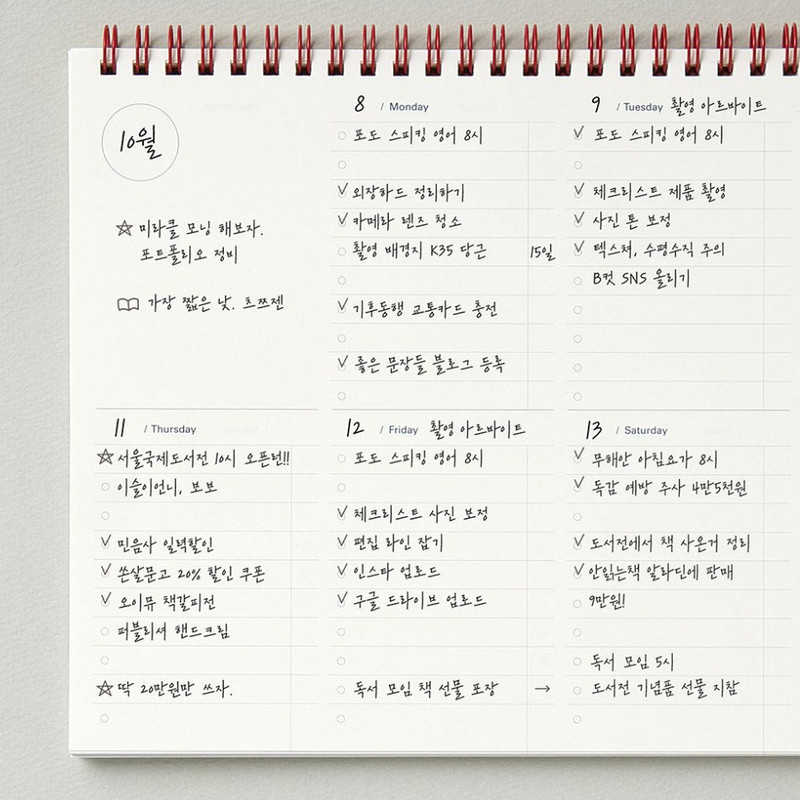 10월
☆ 미라클 모닝 해보자.
포트폴리오 정비
가장 짧은 낮. 츠쯔젠
8 / Monday
포도 스피킹 영어 8시
✓ 외장하드 정리하기
✓ 카메라 렌즈 청소
촬영 배경지 K35 당근 15일
✓ 기후동행 교통카드 충전
✓ 좋은 문장들 블로그 등록
9 / Tuesday 촬영 아르바이트
✓ 포도 스피킹 영어 8시
✓ 체크리스트 제품 촬영
✓ 사진 톤 보정
✓ 텍스쳐, 수평수직 주의
B컷 SNS 올리기
11 / Thursday
☆ 서울국제도서전 10시 오픈런!!
이슬이언니, 보보
✓ 민음사 일력할인
✓ 쏜살문고 20% 할인 쿠폰
✓ 오이뮤 책갈피전
퍼블리셔 핸드크림
☆ 딱 20만원만 쓰자.
12 / Friday 촬영 아르바이트
포도 스피킹 영어 8시
✓ 체크리스트 사진 보정
✓ 편집 라인 잡기
✓ 인스타 업로드
✓ 구글 드라이브 업로드
독서 모임 책 선물 포장 →
13 / Saturday
✓ 무해안 아침요가 8시
✓ 독감 예방 주사 4만5천원
✓ 도서전에서 책 사온거 정리
✓ 안읽는책 알라딘에 판매
9만원!
독서 모임 5시
도서전 기념품 선물 지참